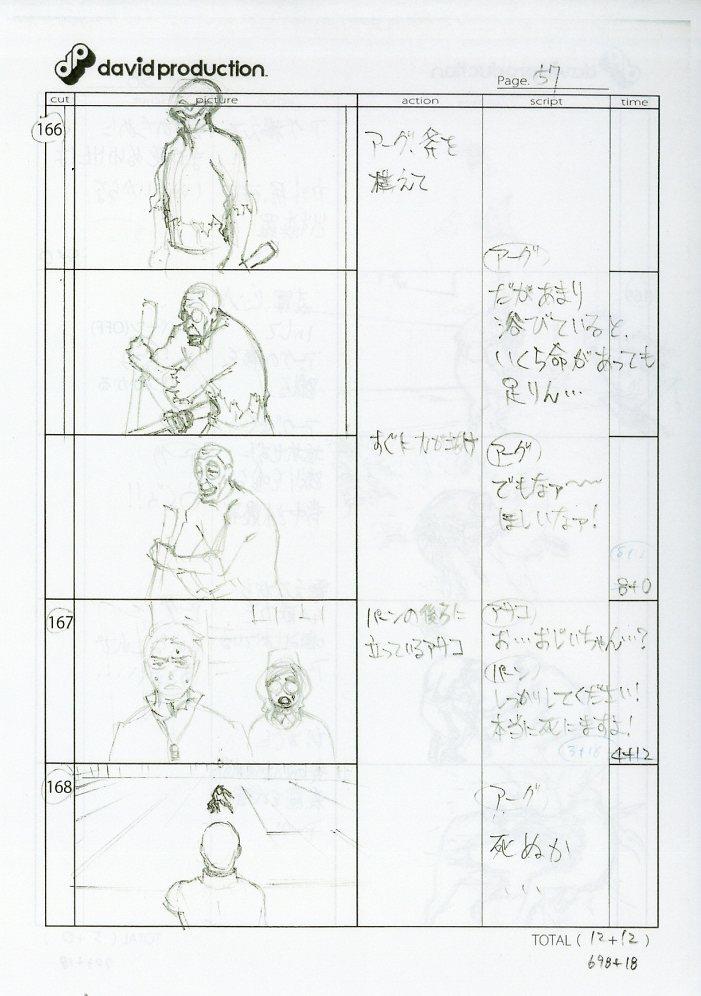 davidproduction.
Page. 57
cut picture action script time
166
アーグ、斧を
構えて
アーグ
だがあまり
浴びていると、
いくら命があっても
足りん…
すぐに力がぬけ
アーグ
でもなァ〜〜
ほしいなァ!
8+0
167
パーンの後ろに
立っているアサコ
アサコ
お…おじいちゃん…?
パーン
しっかりしてください!
本当に死にますよ!
3+18
4+12
168
アーグ
死ぬか
…
TOTAL ( 12+12 )
698+18